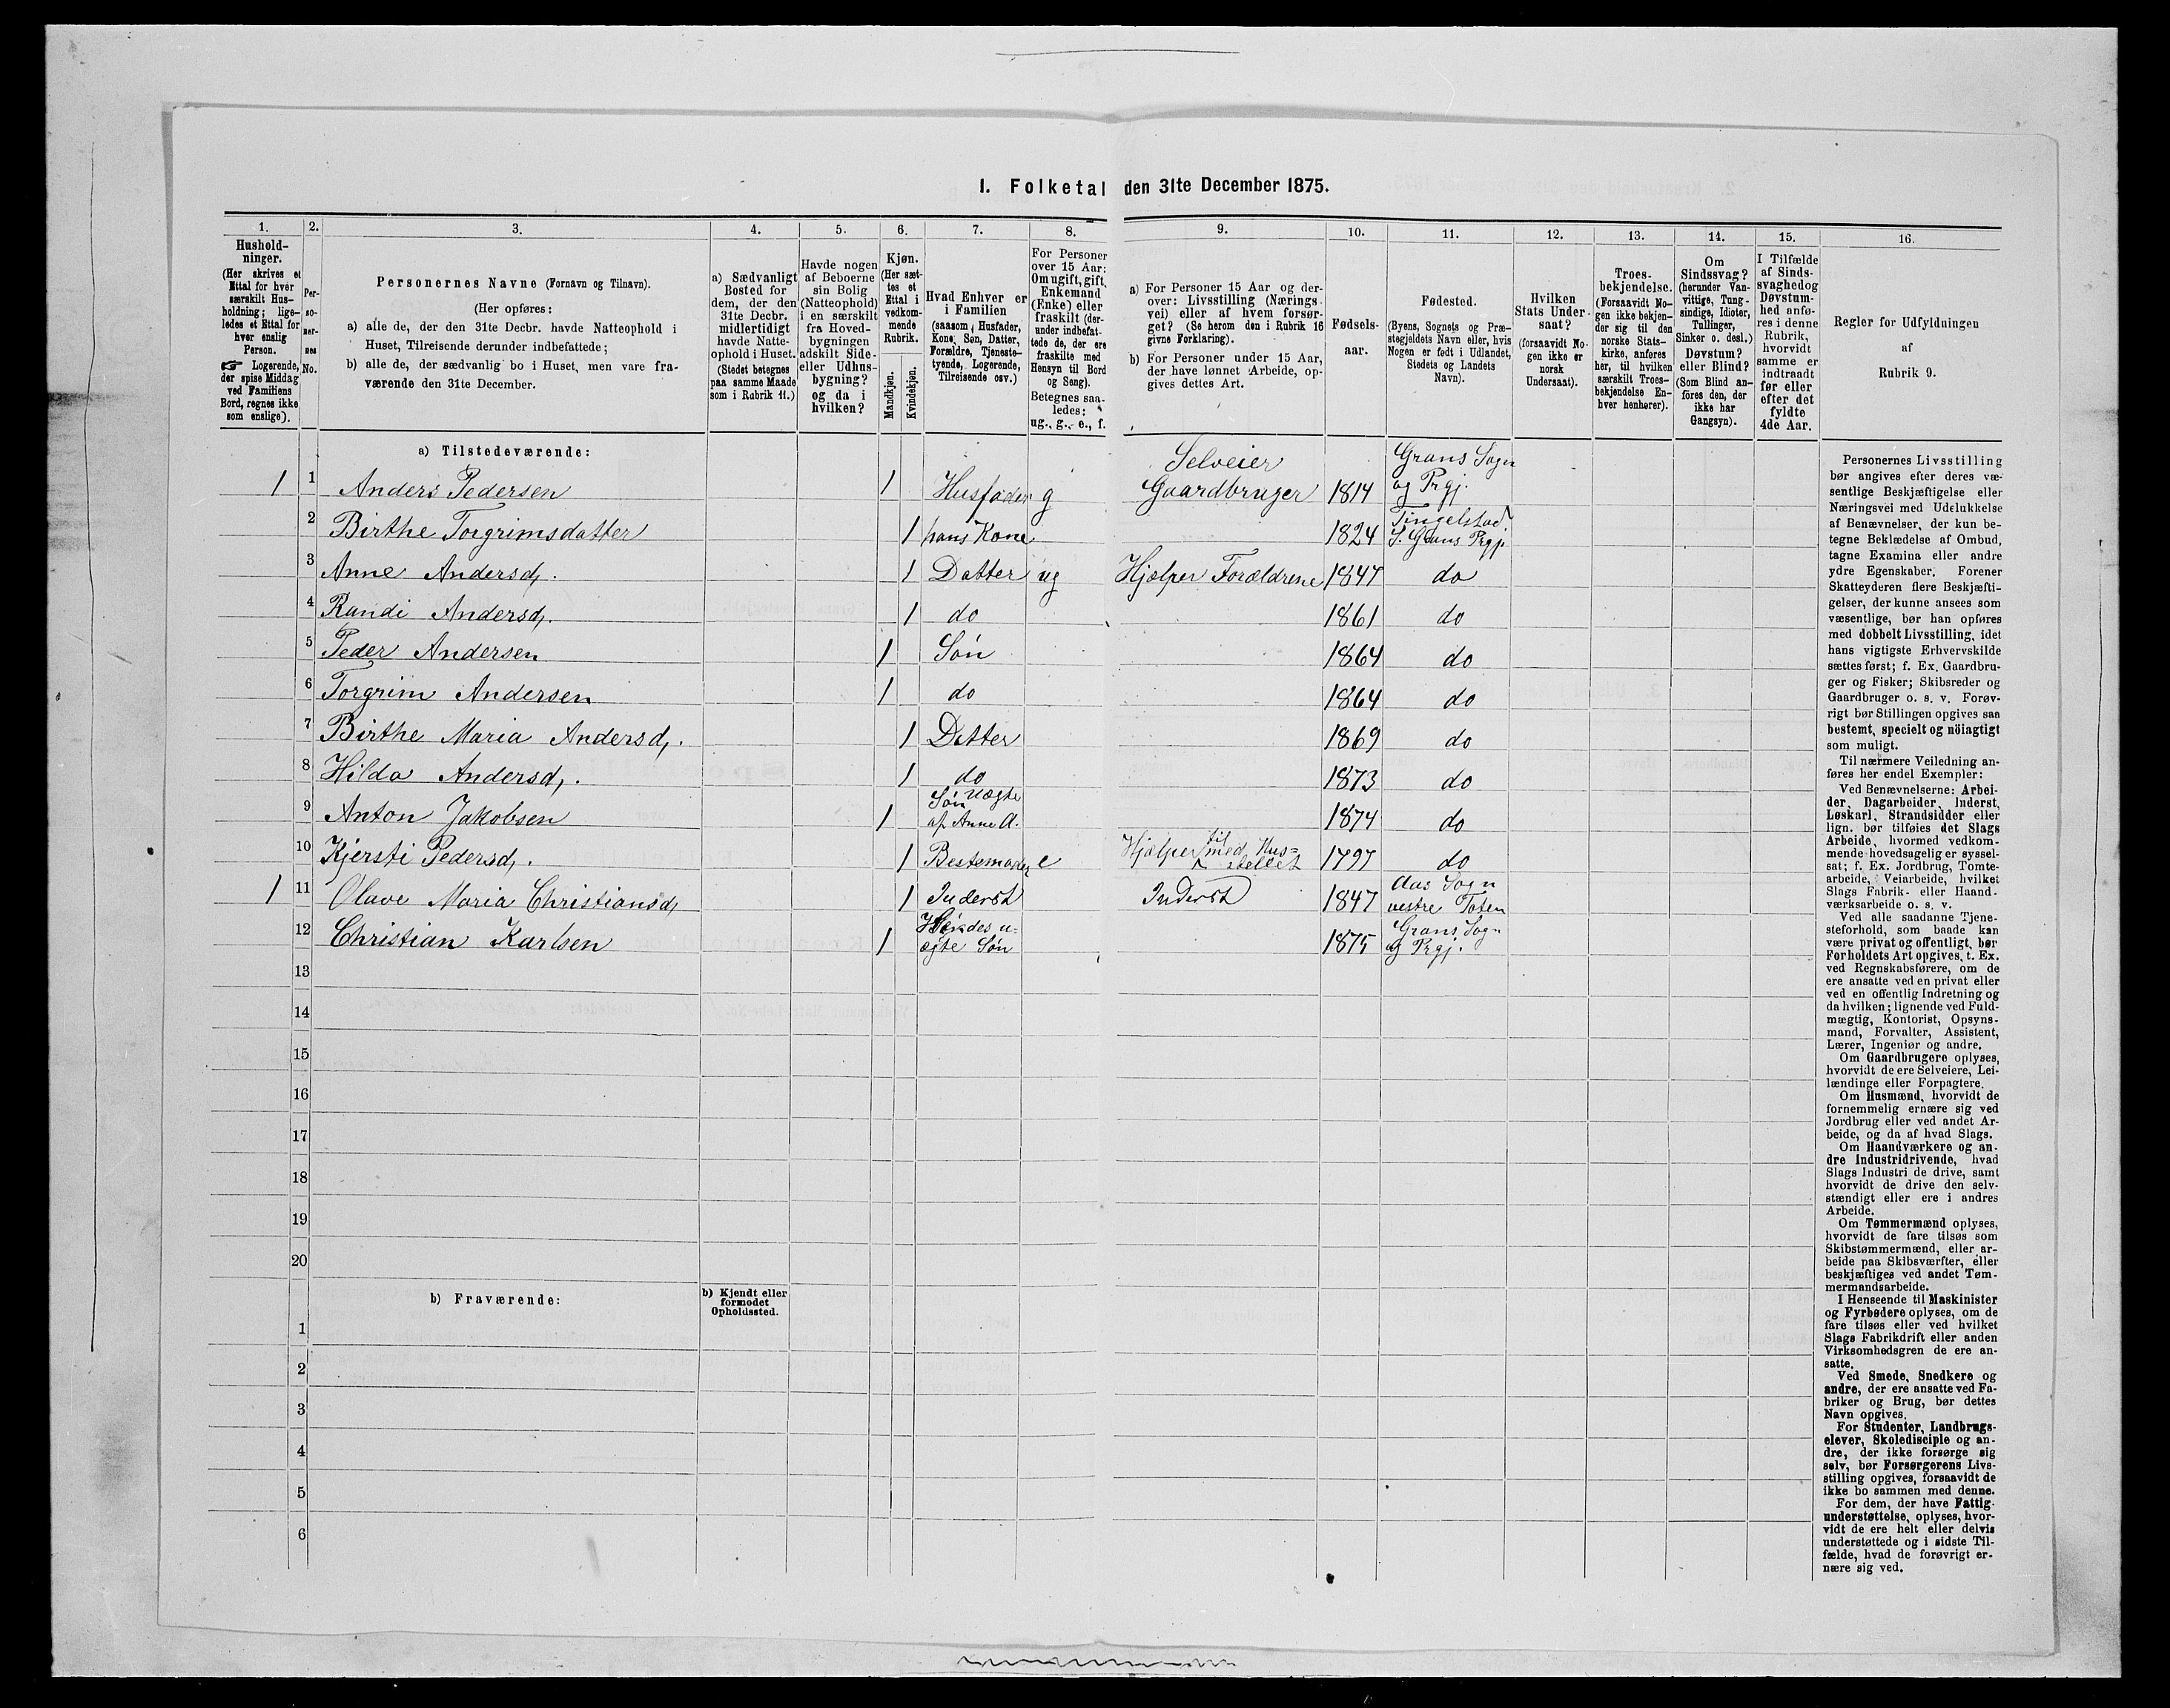 I. Folketal den 31te December 1875.
1.
Hushold-
ninger.
(Her skrives et
Ettal for hver
særskilt Hus-
holdning; lige-
ledes et Ettal for
hver enslig
Person.
☞ Logerende,
der spise Middag
ved Familiens
Bord, regnes ikke
som enslige).
2.
Per-
so-
ner-
nes
No.
3.
Personernes Navne (Fornavn og Tilnavn).
(Her opføres:
a) alle de, der den 31te Decbr. havde Natteophold i
Huset, Tilreisende derunder indbefattede;
b) alle de, der sædvanlig bo i Huset, men vare fra-
værende den 31te December.
4.
a) Sædvanligt
Bosted for
dem, der den
31te Decbr.
midlertidigt
havde Natte-
ophold i Huset.
(Stedet betegnes
paa samme Maade
som i Rubrik 11.)
5.
Havde nogen
af Beboerne
sin Bolig
(Natteophold)
i en særskilt
fra Hoved-
bygningen
adskilt Side-
eller Udhus-
bygning?
og da i
hvilken?
6.
Kjøn.
(Her sæt-
tes et
Ettal i
vedkom-
mende
Rubrik.
Mandkjøn.
Kvindekjøn.
7.
Hvad Enhver er
i Familien
(saasom Husfader,
Kone, Søn, Datter,
Forældre, Tjeneste-
tyende, Logerende,
Tilreisende osv.)
8.
For Personer
over 15 Aar:
Om ugift, gift,
Enkemand
(Enke) eller
fraskilt (der-
under indbefat-
tede de, der ere
fraskilte med
Hensyn til Bord
og Seng).
Betegnes saa-
ledes:
ug., g., e., f.
9.
a) For Personer 15 Aar og der-
over: Livsstilling (Nærings
vei) eller af hvem forsør-
get? (Se herom den i Rubrik 16
givne Forklaring).
b) For Personer under 15 Aar,
der have lønnet Arbeide, op-
gives dettes Art.
10.
Fødsels-
aar.
11.
Fødested.
(Byens, Sognets og Præ-
stegjeldets Navn eller, hvis
Nogen er født i Udlandet,
Stedets og Landets
Navn).
12.
Hvilken
Stats Under-
saat?
(forsaavidt No-
gen ikke er
norsk
Undersaat).
13.
Troes-
bekjendelse.
(Forsaavidt No-
gen ikke bekjen-
der sig til den
norske Stats-
kirke, anføres
her, til hvilken
særskilt Troes-
bekjendelse En-
hver henhører).
14.
Om
Sindssvag?
(herunder Van-
vittige, Tung-
sindige, Idioter,
Tullinger,
Sinker o. desl.)
Døvstum?
eller Blind?
(Som Blind an-
føres den, der
ikke har
Gangsyn).
15.
I Tilfælde
af Sinds-
svaghed og
Døvstum-
hed anfø-
res i denne
Rubrik,
hvorvidt
samme er
indtraadt
før eller
efter det
fyldte
4de Aar.
16.
Regler for Udfyldningen
af
Rubrik 9.
a) Tilstedeværende:
1 1 Anders Pedersen 1 Husfader g Selveier Gaardbruger 1814 Grans Sogn og Prgj.
2 Birthe Torgrimsdatter 1 hans Kone 1824 Tingelstad S. Grans Prgj.
3 Anne Andersd. 1 Datter ug Hjælper Forældrene 1847 do
4 Randi Andersd. 1 do 1861 do
5 Peder Andersen 1 Søn 1864 do
6 Torgrim Andersen 1 do 1864 do
7 Birthe Maria Andersd. 1 Datter 1869 do
8 Hilda Andersd. 1 do 1873 do
9 Anton Jakobsen 1 Søn uægte af Anne A. 1874 do
10 Kjersti Pedersd. 1 Bestemoder e Hjælper til med Hus=stellet 1797 do
1 11 Olave Maria Christiansd. 1 Inderst Inderst 1847 Aas Sogn vestre Toten
12 Christian Karlsen 1 Hendes u-ægte Søn 1875 Grans Sogn og Prgj.
13
14
15
16
17
18
19
20
b) Fraværende:
b) Kjendt eller
formodet
Opholdssted.
1
2
3
4
5
6
Personernes Livsstilling
bør angives efter deres væ-
sentlige Beskjæftigelse eller
Næringsvei med Udelukkelse
af Benævnelser, der kun be-
tegne Beklædelse af Ombud,
tagne Examina eller andre
ydre Egenskaber. Forener
Skatteyderen flere Beskjæfti-
gelser, der kunne ansees som
væsentlige, bør han opføres
med dobbelt Livsstilling, idet
hans vigtigste Erhvervskilde
sættes først; f. Ex. Gaardbru-
ger og Fisker; Skibsreder og
Gaardbruger o. s. v. Forøv-
rigt bør Stillingen opgives saa
bestemt, specielt og nöiagtigt
som muligt.
Til nærmere Veiledning an-
føres her endel Exempler:
Ved Benævnelserne: Arbei-
der, Dagarbeider, Inderst,
Løskarl, Strandsidder eller
lign. bør tilføies det Slags
Arbeide, hvormed vedkom-
mende hovedsagelig er syssel-
sat; f. Ex. Jordbrug, Tomte-
arbeide, Veiarbeide, hvilket
Slags Fabrik- eller Haand-
værksarbeide o. s. v.
Ved alle saadanne Tjene-
steforhold, som baade kan
være privat og offentligt, bør
Forholdets Art opgives, t. Ex.
ved Regnskabsførere, om de
ere ansatte ved en privat eller
ved en offentlig Indretning og
da hvilken; lignende ved Fuld-
mægtig, Kontorist, Opsyns-
mand, Forvalter, Assistent,
Lærer, Ingeniør og andre.
Om Gaardbrugere oplyses,
hvorvidt de ere Selveiere, Lei-
lændinge eller Forpagtere.
Om Husmænd, hvorvidt de
fornemmelig ernære sig ved
Jordbrug eller ved andet Ar-
beide, og da af hvad Slags.
Om Haandværkere og an-
dre Industridrivende, hvad
Slags Industri de drive, samt
hvorvidt de drive den selv-
stændigt eller ere i andres
Arbeide.
Om Tømmermænd oplyses,
hvorvidt de fare tilsøs som
Skibstømmermænd, eller ar-
beide paa Skibsværfter, eller
beskjæftiges ved andet Tøm-
mermandsarbeide.
I Henseende til Maskinister
og Fyrbødere oplyses, om de
fare tilsøs eller ved hvilket
Slags Fabrikdrift eller anden
Virksomhedsgren de ere an-
satte.
Ved Smede, Snedkere og
andre, der ere ansatte ved Fa-
briker og Brug, bør dettes
Navn opgives.
For Studenter, Landbrugs-
elever, Skoledisciple og an-
dre, der ikke forsørge sig
selv, bør Forsørgerens Livs-
stilling opgives, forsaavidt de
ikke bo sammen med denne.
For dem, der have Fattig-
understøttelse, oplyses, hvor-
vidt de ere helt eller delvis
understøttede og i sidste Til-
fælde, hvad de forøvrigt er-
nære sig ved.